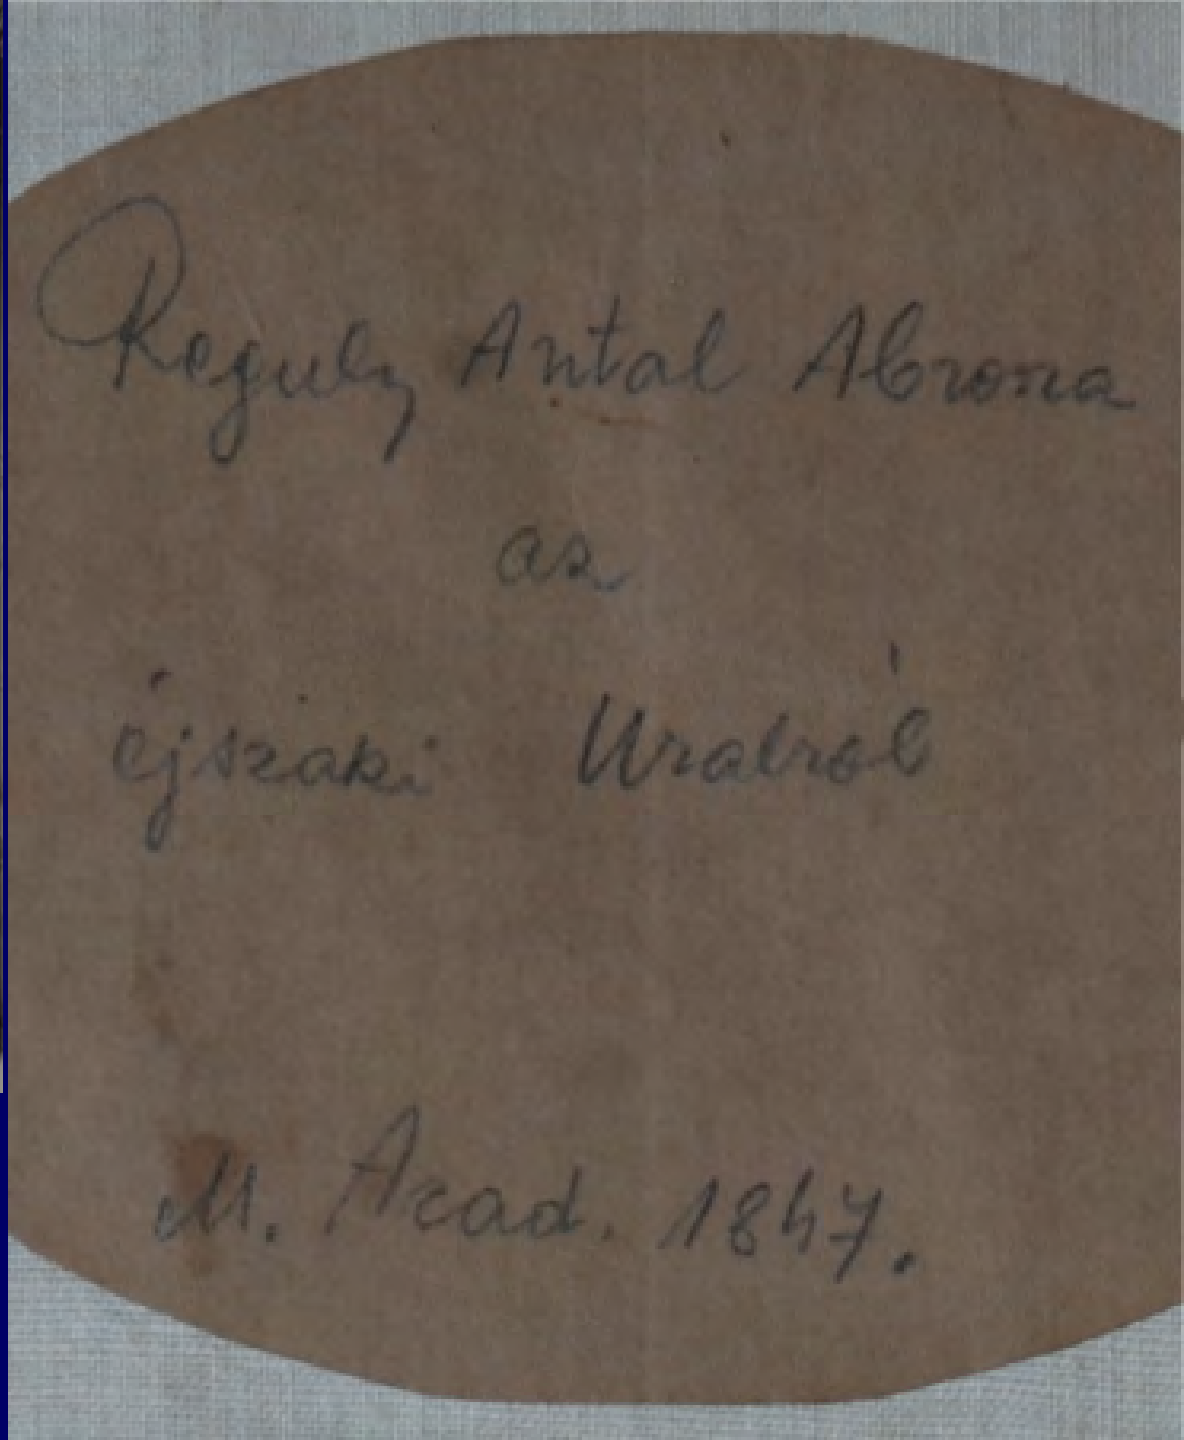 Reguly Antal Abrosza
az
éjszaki Uralról
M. Acad. 1847.